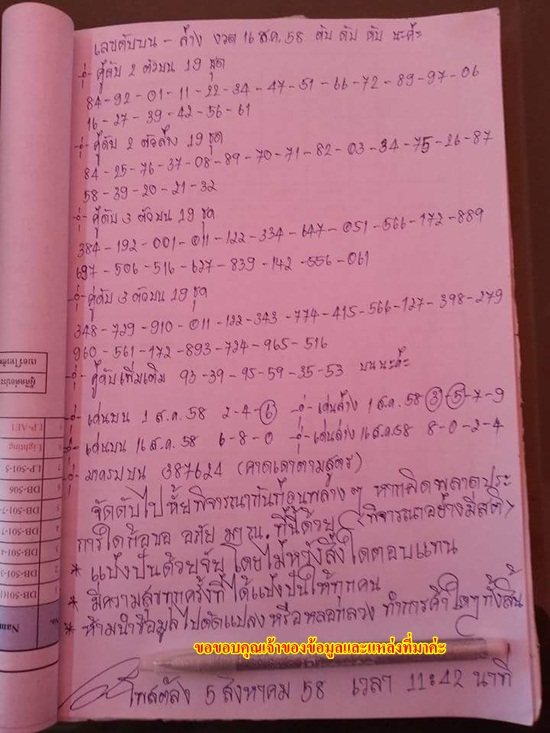 เลขดับบน - ล่าง งวด 16 ส.ค. 58 ดับ ดับ ดับ นะค่ะ
คู่ดับ 2 ตัวบน 19 ชุด
84-92-01-11-22-34-47-51-66-72-89-97-06
16-27-39-42-56-61
คู่ดับ 2 ตัวล่าง 19 ชุด
84-25-76-37-08-89-70-71-82-03-34-75-26-87
58-39-20-21-32
คู่ดับ 3 ตัวบน 19 ชุด
384-192-001-011-122-334-647-051-566-172-889
697-506-516-627-839-142-556-061
คู่ดับ 3 ตัวบน 19 ชุด
348-729-910-011-122-343-774-415-566-127-398-279
960-561-172-893-724-965-516
คู่ดับเพิ่มเติม 93-39-95-59-35-53 บนนะค่ะ
เด่นบน 1 ส.ค. 58 2-4-6 เด่นล่าง 1 ส.ค. 58 3-5-7-9
เด่นบน 16 ส.ค. 58 6-8-0 เด่นล่าง 16 ส.ค. 58 8-0-2-4
มาครบบน 387624 (คาดเดาตามสูตร)
จัดดับไปให้พิจารณากันก่อนพลางๆ หากผิดพลาดประ
การใดก็ขอ อภัย มา ณ. ที่นี้ด้วย (พิจารณาอย่างมีสติ)
* แบ่งปันด้วยใจ โดยไม่หวังสิ่งใดตอบแทน
* มีความสุขทุกครั้งที่ได้แบ่งปันให้ทุกคน
* ห้ามนำข้อมูลไปดัดแปลง หรือหลอกลวง ทำการค้าใดๆทั้งสิ้น
ขอขอบคุณเจ้าของข้อมูลและแหล่งที่มาค่ะ
โพสต์ลง 5 สิงหาคม 58 เวลา 11:42 นาที
LP-AE1
Lighting
LP-501-5
DB-506
DB-501-7
Nam